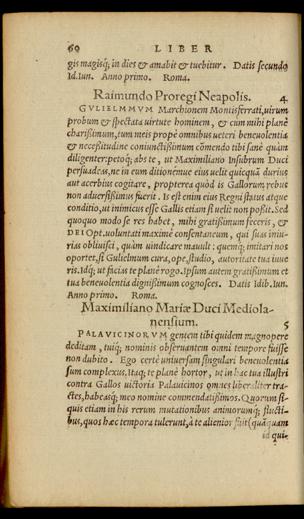 60 LIBER
gis magisq́; in dies & amabit & tuebitur. Datis secundo
Id. Iun. Anno primo. Roma.
Raimundo Proregi Neapolis. 4
GVLIELMVM Marchionem Montisferrati, uirum
probum & spectata uirtute hominem, & cum mihi planè
charißimum, tum meis propè omnibus ueteri beneuolentia
& neceßitudine coniunctißimum cõmendo tibi sanè quàm
diligenter: petoq́; abs te, ut Maximiliano Insubrum Duci
persuadeas, ne in eum ditionémue eius uelit quicquã durius
aut acerbius cogitare, propterea quòd is Gallorum rebus
non aduersißimus fuerit. Is est enim eius Regni status atque
conditio, ut inimicus esse Gallis etiam si uelit non poßit. Sed
quoquo modo se res habet, mihi gratißimum feceris, &
DEI Opt. uoluntati maximè consentaneum, qui suas iniu-
rias obliuisci, quàm uindicare mauult: quemq́; imitari nos
oportet, si Gulielmum cura, ope, studio, autoritate tua iuue
ris. Idq́; ut facias te planè rogo. Ipsum autem gratißimum et
tua beneuolentia dignißimum cognosces. Datis Idib. Iun.
Anno primo. Roma.
Maximiliano Mariæ Duci Mediola-
nensium. 5
PALAVICINORVM gentem tibi quidem magnopere
deditam, tuiq́; nominis obseruantem omni tempore fuisse
non dubito. Ego certè uniuersam singulari beneuolentia
sum complexus. Itaq́; te planè hortor, ut in hac tua illustri
contra Gallos uictoria Palauicinos omnes liberaliter tra-
ctes, habeasq́; meo nomine commendatißimos. Quorum si
quis etiam in his rerum mutationibus animorumq́; flucti-
bus, quos hæc tempora tulerunt, à te alienior fuit (quãquam
id qui-